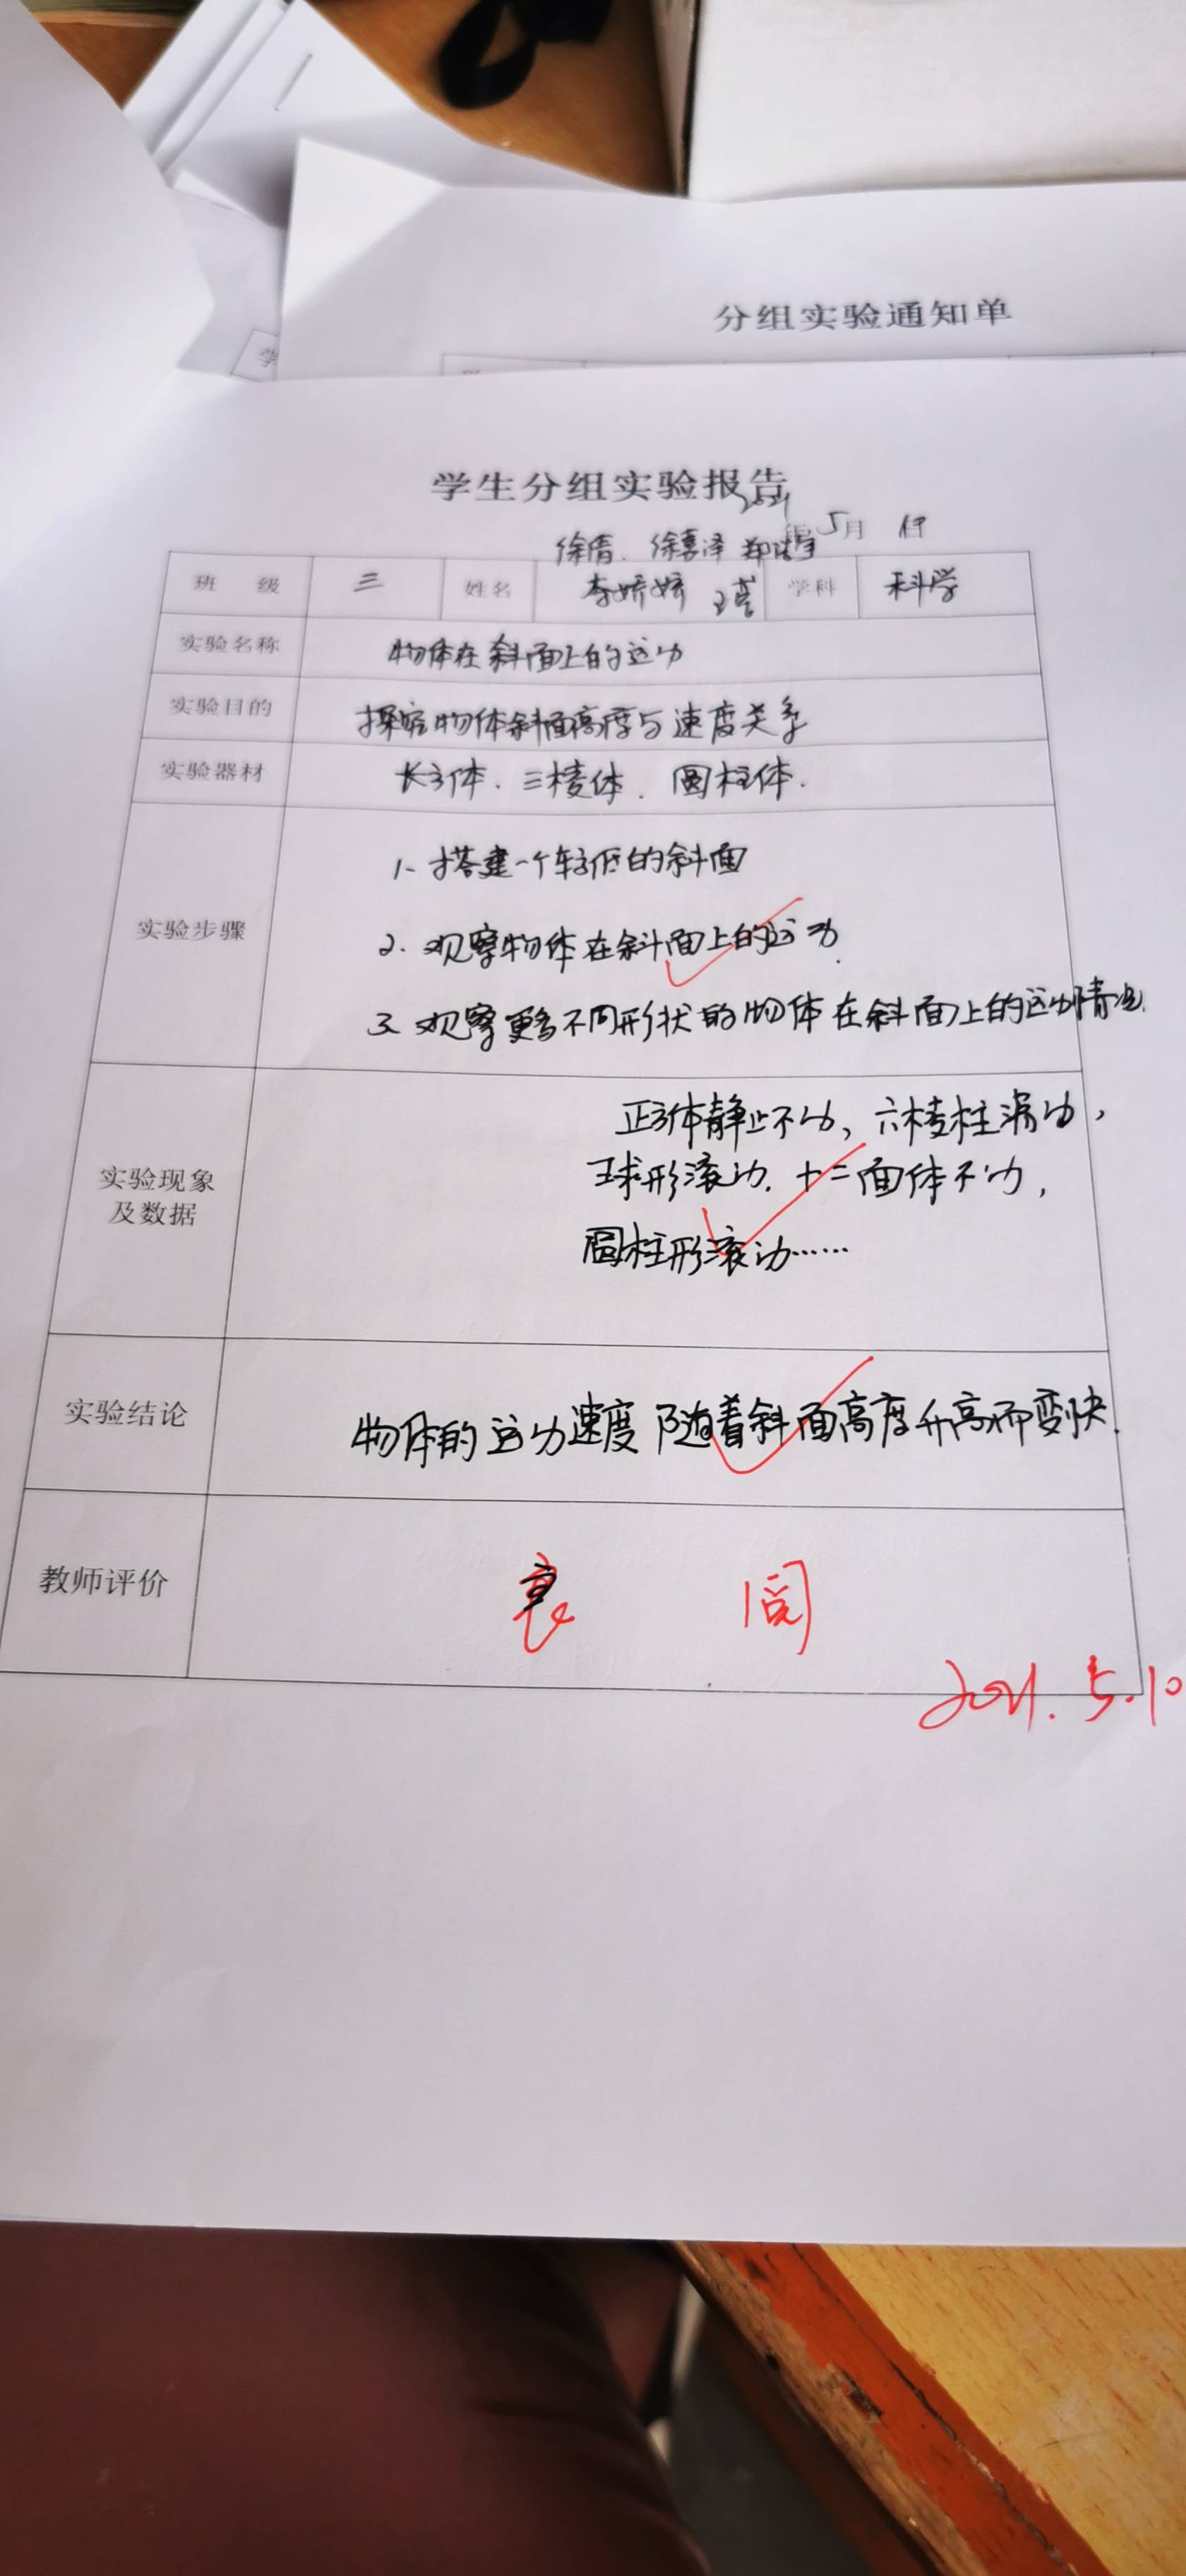 分组实验通知单
学
学生分组实验报告
2021年5月10日
徐倩、徐喜泽
班 级 三 姓名 李娇娇 学科 科学
实验名称 物体在斜面上的运动
实验目的 探究物体斜面高度与速度关系
实验器材 长方体、三棱体、圆柱体.
实验步骤
1、搭建一个较低的斜面
2、观察物体在斜面上的运动.
3、观察更多不同形状的物体在斜面上的运动情况.
实验现象
及数据
正方体静止不动,六棱柱滑动,
球形滚动,十二面体不动,
圆柱形滚动……
实验结论 物体的运动速度随着斜面高度升高而变快.
教师评价
2021.5.10